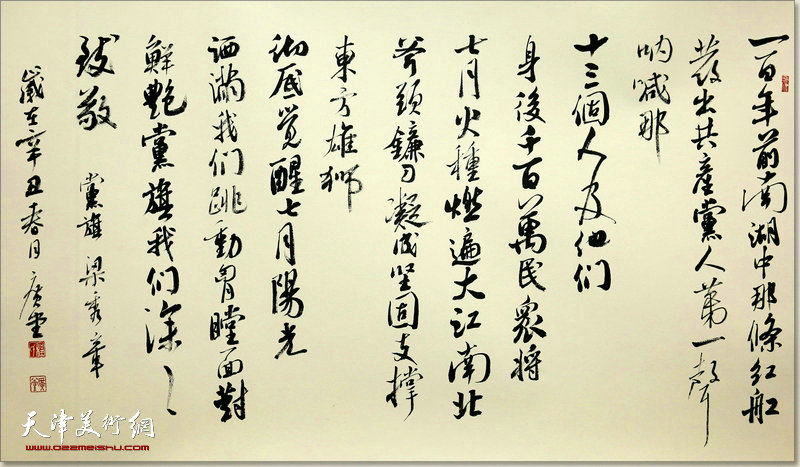 一百年前南湖中那條红船
發出共產黨人第一聲
呐喊那
十三個人及他们
身後千百萬民衆将
七月火種燃遍大江南北
斧頭鐮刀凝成坚固支撑
東方雄狮
彻底觉醒七月陽光
洒满我们跳動胸膛面對
鮮艷黨旗我们深々
致敬
黨旗 梁秀章
歲在辛丑春月广
天津美術網
www.022meishu.com